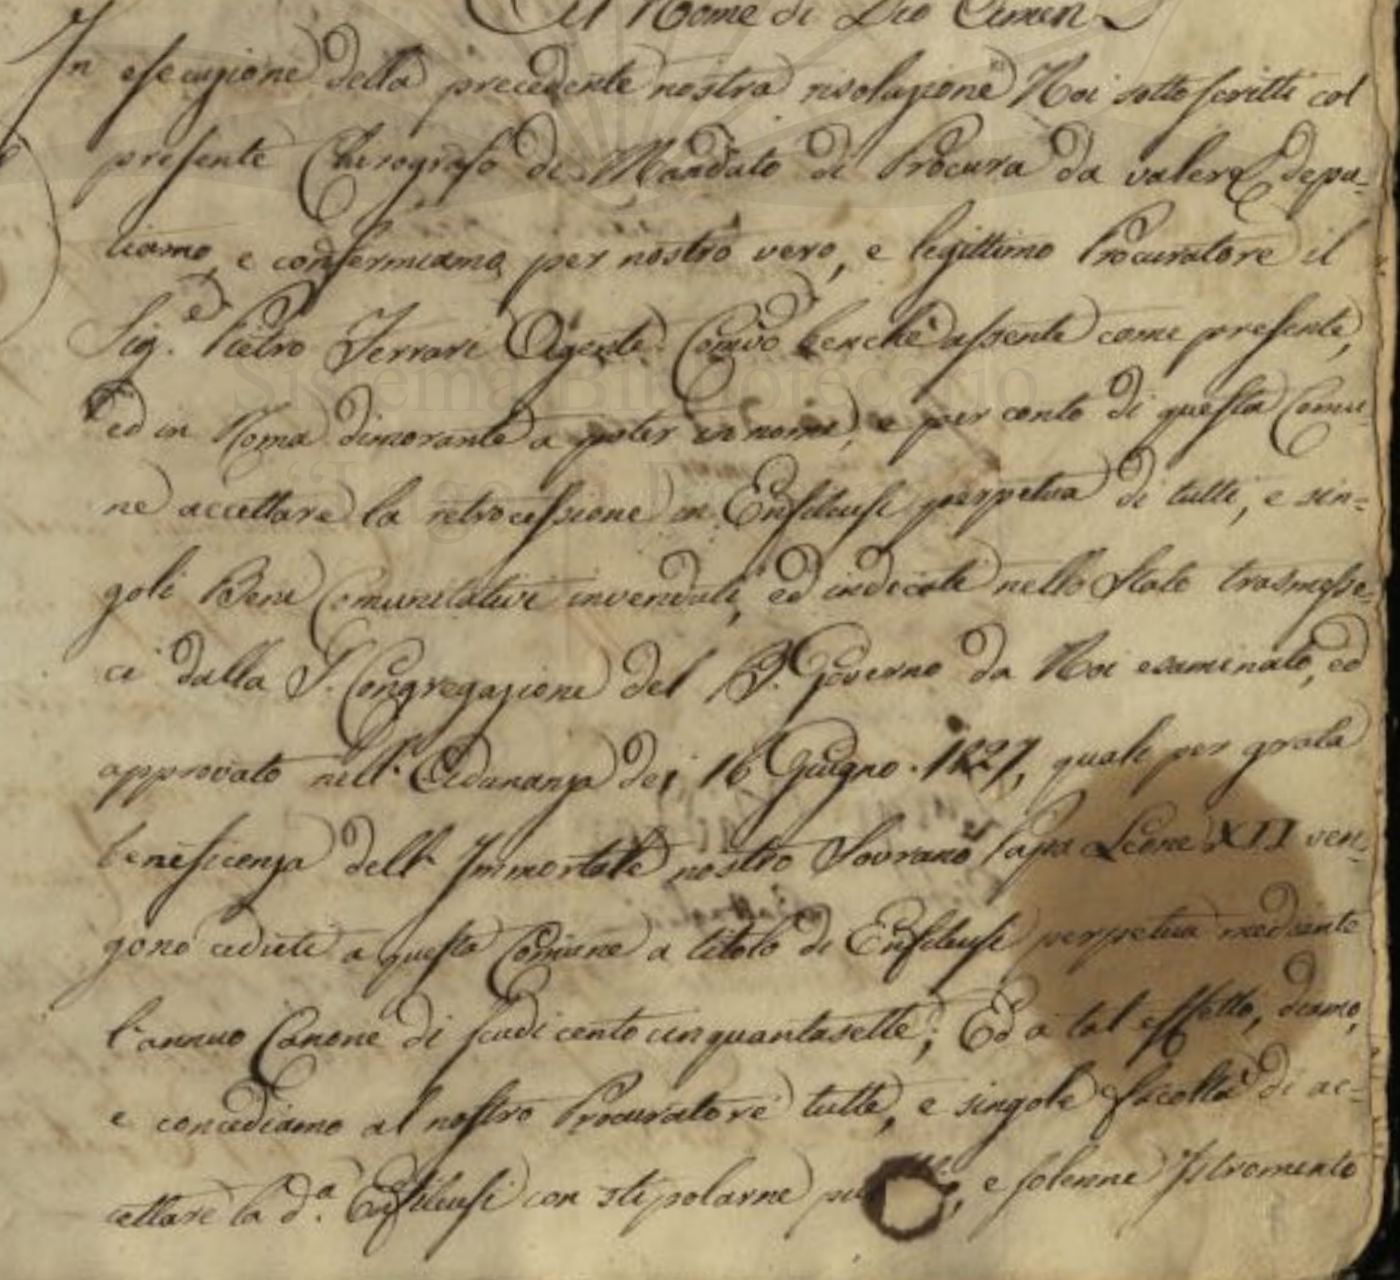 Al Nome di Dio Amen
In esecuzione della precedente nostra risoluzione Noi sottoscritti col
presente Chirografo di Mandato di Procura da valere depu-
tiamo, e confermiamo per nostro vero, e legittimo Procuratore il
Sig.e Pietro Ferrari Agente benchè assente come presente,
ed in Roma dimorante a poter in nome, e per conto di questa Comu-
ne accettare la retrocessione in Enfiteusi perpetua di tutti, e sin-
goli Beni Comunitativi invenduti, ed indicati nello Stato trasmesso-
ci dalla S. Congregazione del B. Governo da Noi esaminato, ed
approvato nell' Adunanza dei 16 Giugno 1827, quali per grata
beneficenza dell' Immortale nostro Sovrano Papa Leone XII ven-
gono cedute a questa Comune a titolo di Enfiteusi perpetua mediante
l'annuo Canone di scudi cento cinquantasette; Ed a tal effetto, diamo,
e concediamo al nostro Procuratore tutte, e singole facoltà di ac-
cettare la d.a Enfiteusi con stipolarne , e solenne Istromento
Sistema Bibliotecario